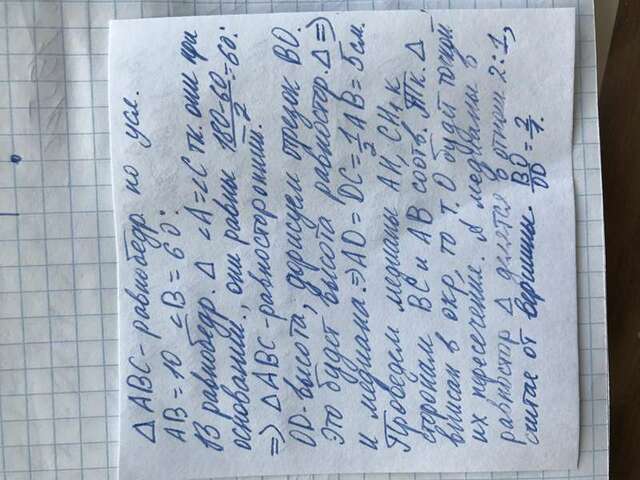 Δ ABC - равнобедр. по усл.
AB = 10 ∠B = 60°.
В равнобедр. Δ ∠A = ∠C т.к. они при
основании, они равны (180-60)/2 = 60°.
=> Δ ABC - равносторонний.
OD - высота, дорисуем отрезок BO.
Это будет высота равностор. Δ =>
и медиана. => AD = DC = 1/2 AB = 5 см.
Проведем медианы AH, CH, к
сторонам BC и AB соотв. Т.к. Δ
вписан в окр, то т. O будет точкой
их пересечения. А медианы в
равностор Δ делятся в отнош 2:1,
считая от вершины. BO/OD = 2/1.